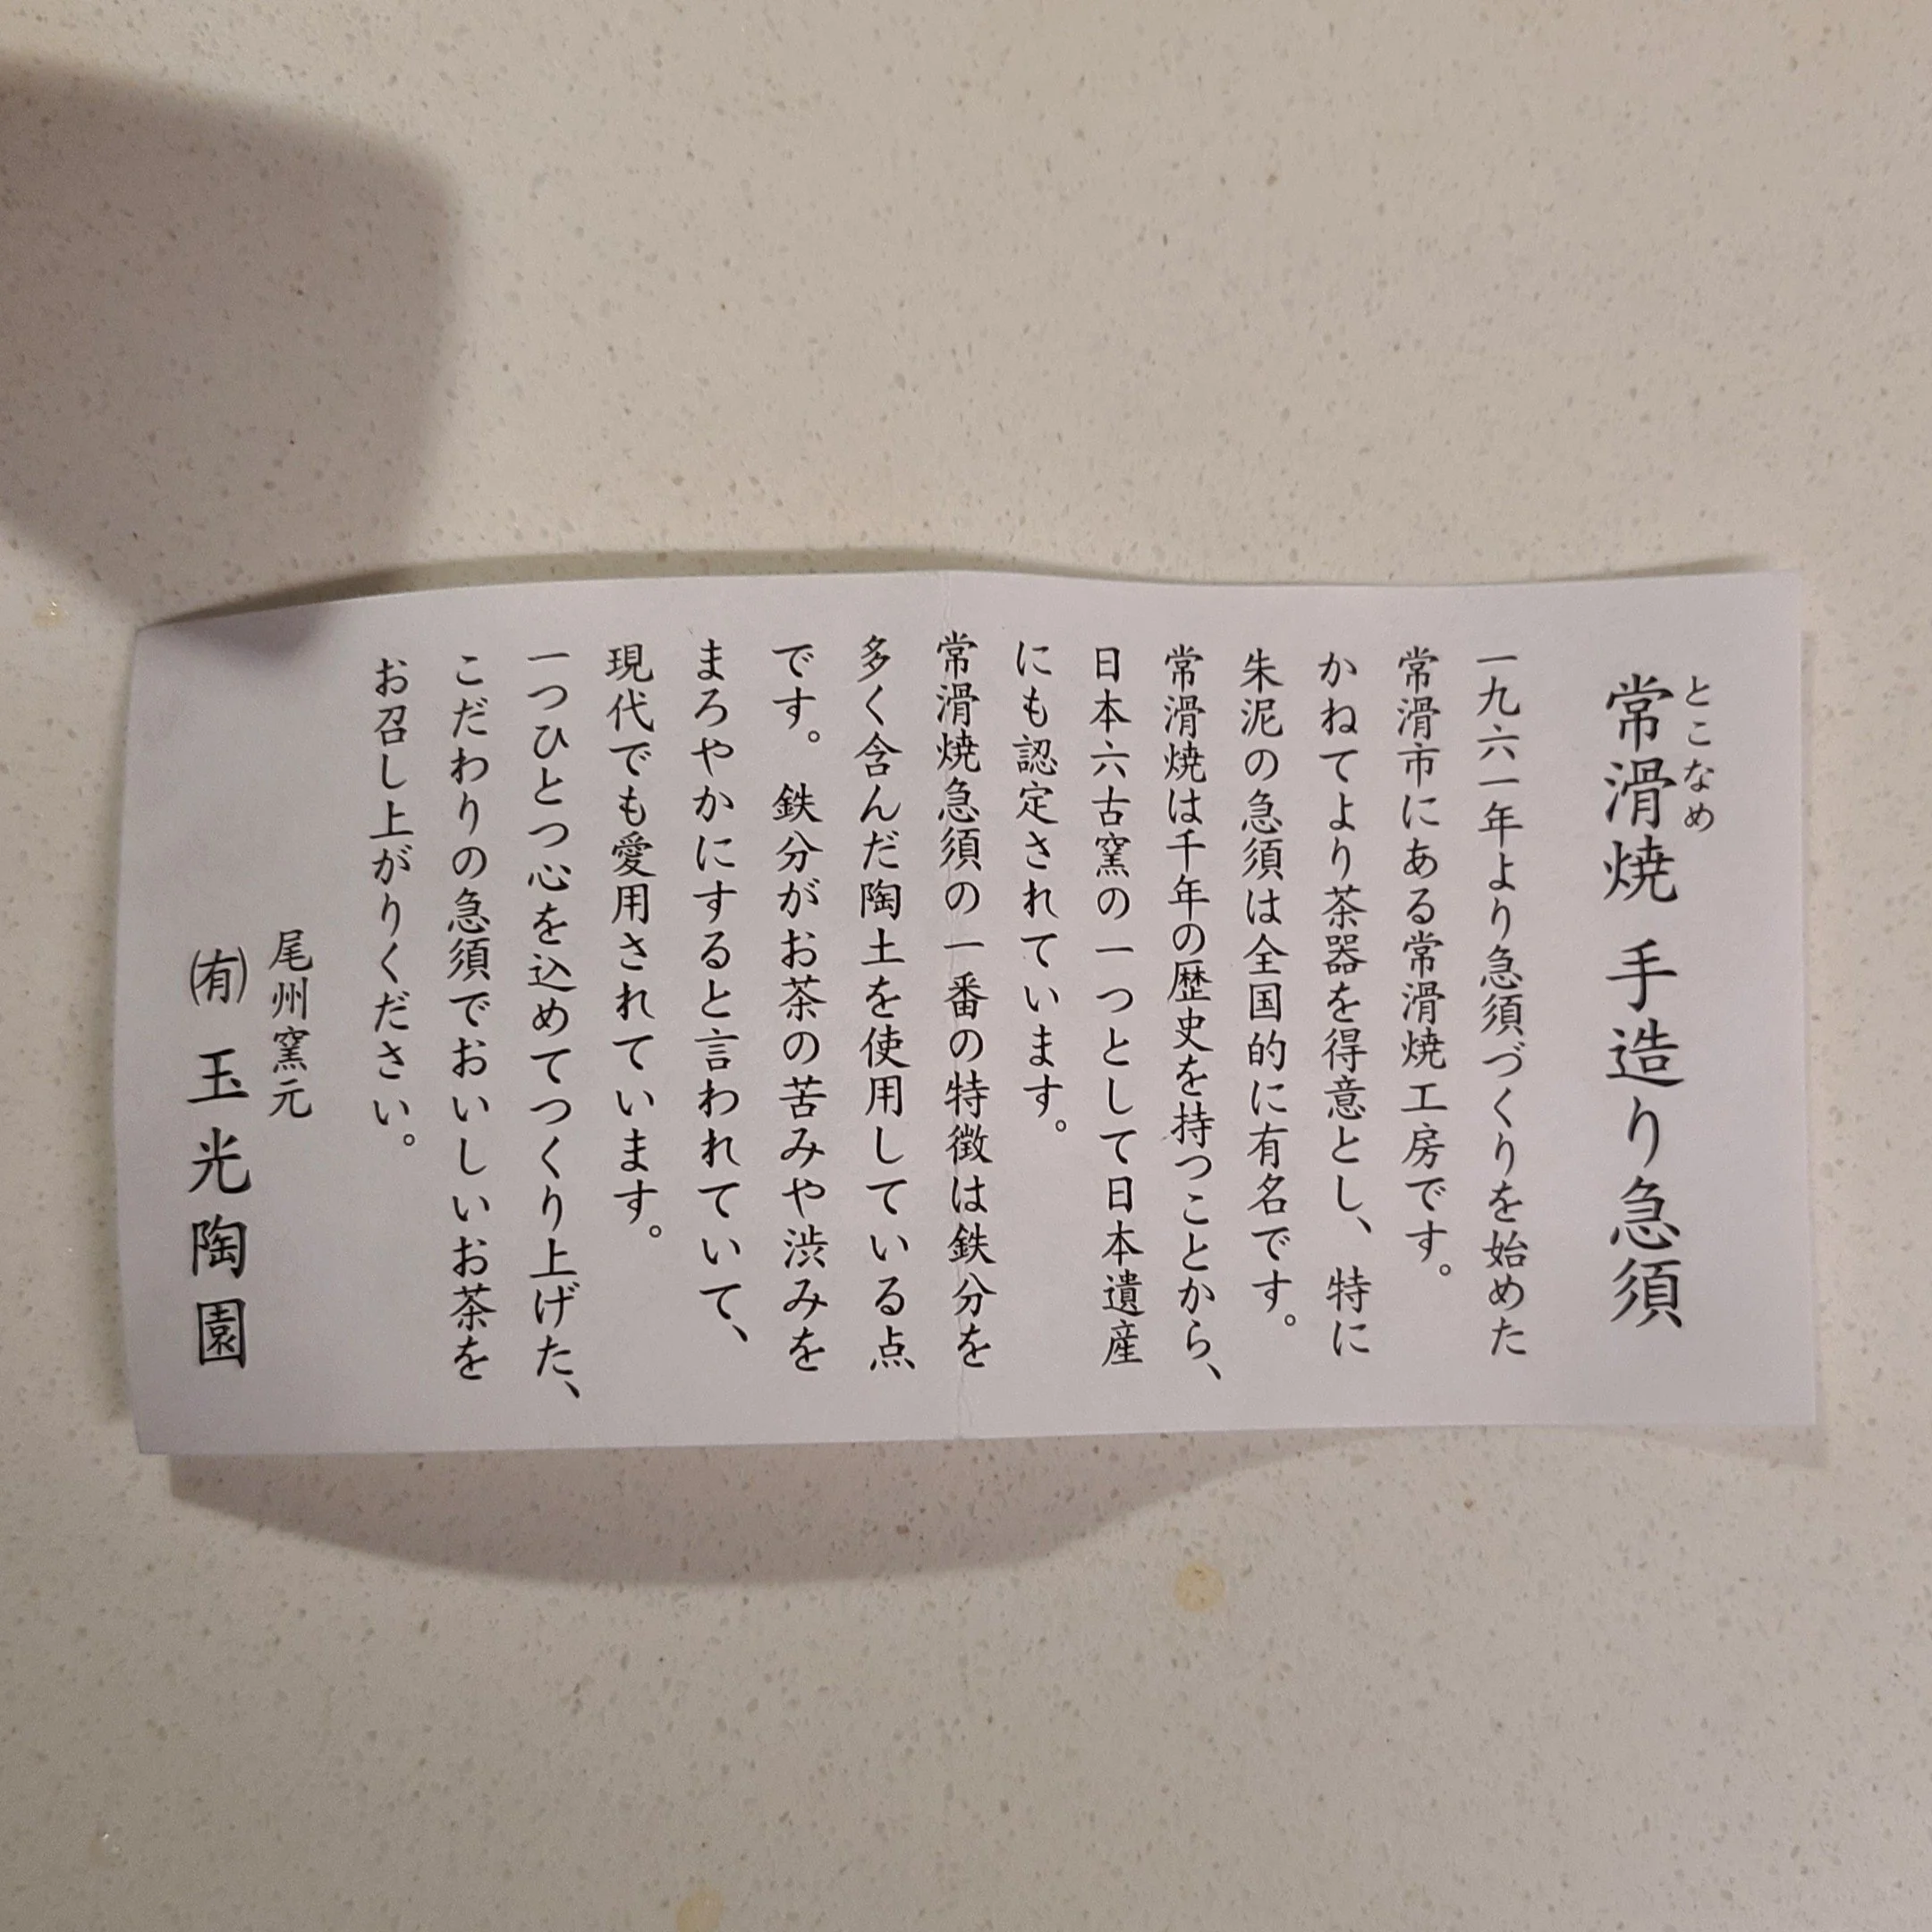 とこなめ
常滑焼 手造り急須
一九六一年より急須づくりを始めた
常滑市にある常滑焼工房です。
かねてより茶器を得意とし、特に
朱泥の急須は全国的に有名です。
常滑焼は千年の歴史を持つことから、
日本六古窯の一つとして日本遺産
にも認定されています。
常滑焼急須の一番の特徴は鉄分を
多く含んだ陶土を使用している点
です。鉄分がお茶の苦みや渋みを
まろやかにすると言われていて、
現代でも愛用されています。
一つひとつ心を込めてつくり上げた、
こだわりの急須でおいしいお茶を
お召し上がりください。
尾州窯元
㈲ 玉光陶園